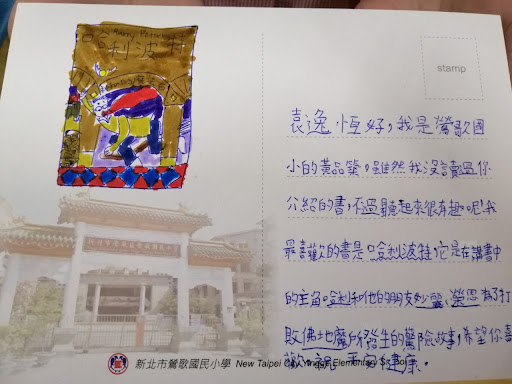 哈利波特
stamp
袁逸恆好,我是鶯歌國
小的黃品,雖然我沒讀過你
介紹的書,不過聽起來很有趣呢!我
最喜歡的書是哈利波特,它是在講書中
的主角哈利和他的朋友妙麗、榮恩為了打
敗佛地魔所發生的驚險故事,希望你喜
歡,祝 平安健康.
新北市鶯歌國民小學 New Taipei City Yingge Elementary School